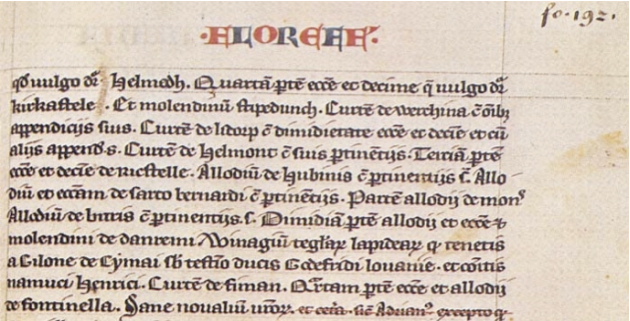 ·FLOREFF·
fo·192.
qd uulgo dr̄· Helmedh. Quartā ꝑtē ecc̄e et decime q̄ uulgo dr̄
kirkastele. Et molendinū stipedunch. Curtē de werchina c̄ oīb;
appendicijs suis. Curtē de lidorp c̄ dimidietate ecc̄e et decīe et cū
alijs append·s. Curtē de Helmont c̄ suis ꝑtinētijs. Terciā ꝑtē
ecc̄e et decīe de ricstelle. Allodiū de Hubinis c̄ ꝑtinentijs s̄. Allo
diū et ecc̄am de sarto bernardi c̄ ꝑtinētijs. Partē allodij de mon
Allodiū de Intris c̄ ꝑtinentijs.s. Dimidiā ꝑtē allodij et ecc̄e ⁊
molendini de danremi Winagiū teglaꝝ lapideaꝝ qͥ tenetis
a Gilone de Cymai sb̄ testīo ducis Godefridi louanie· et comitis
namuci Henrici. Curtē de siman. Qͣrtam ꝑtē ecc̄e et allodij
de fontinella. Sane noualiū uroꝝ. et cetͣ. sic̄ Adrianꝰ. excepto qͥ